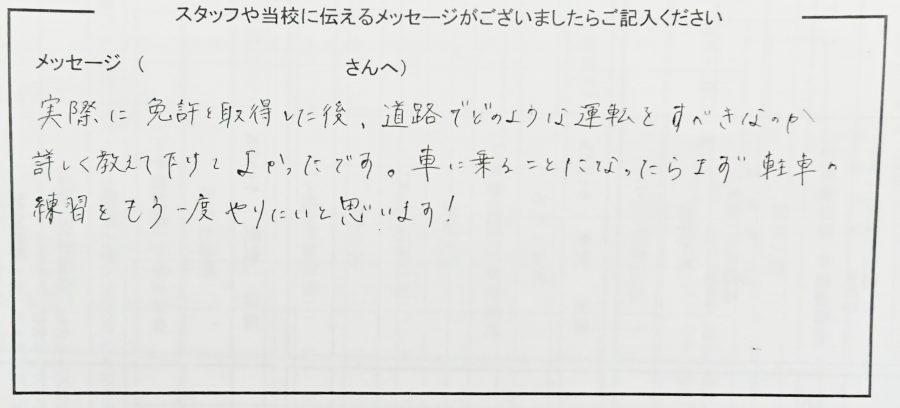 スタッフや当校に伝えるメッセージがございましたらご記入ください
メッセージ （　　　　　　　　　　さんへ）
実際に免許を取得した後、道路でどのような運転をすべきなのか
詳しく教えて下さてよかったです。車に乗ることになったらまず駐車の
練習をもう一度やりたいと思います！